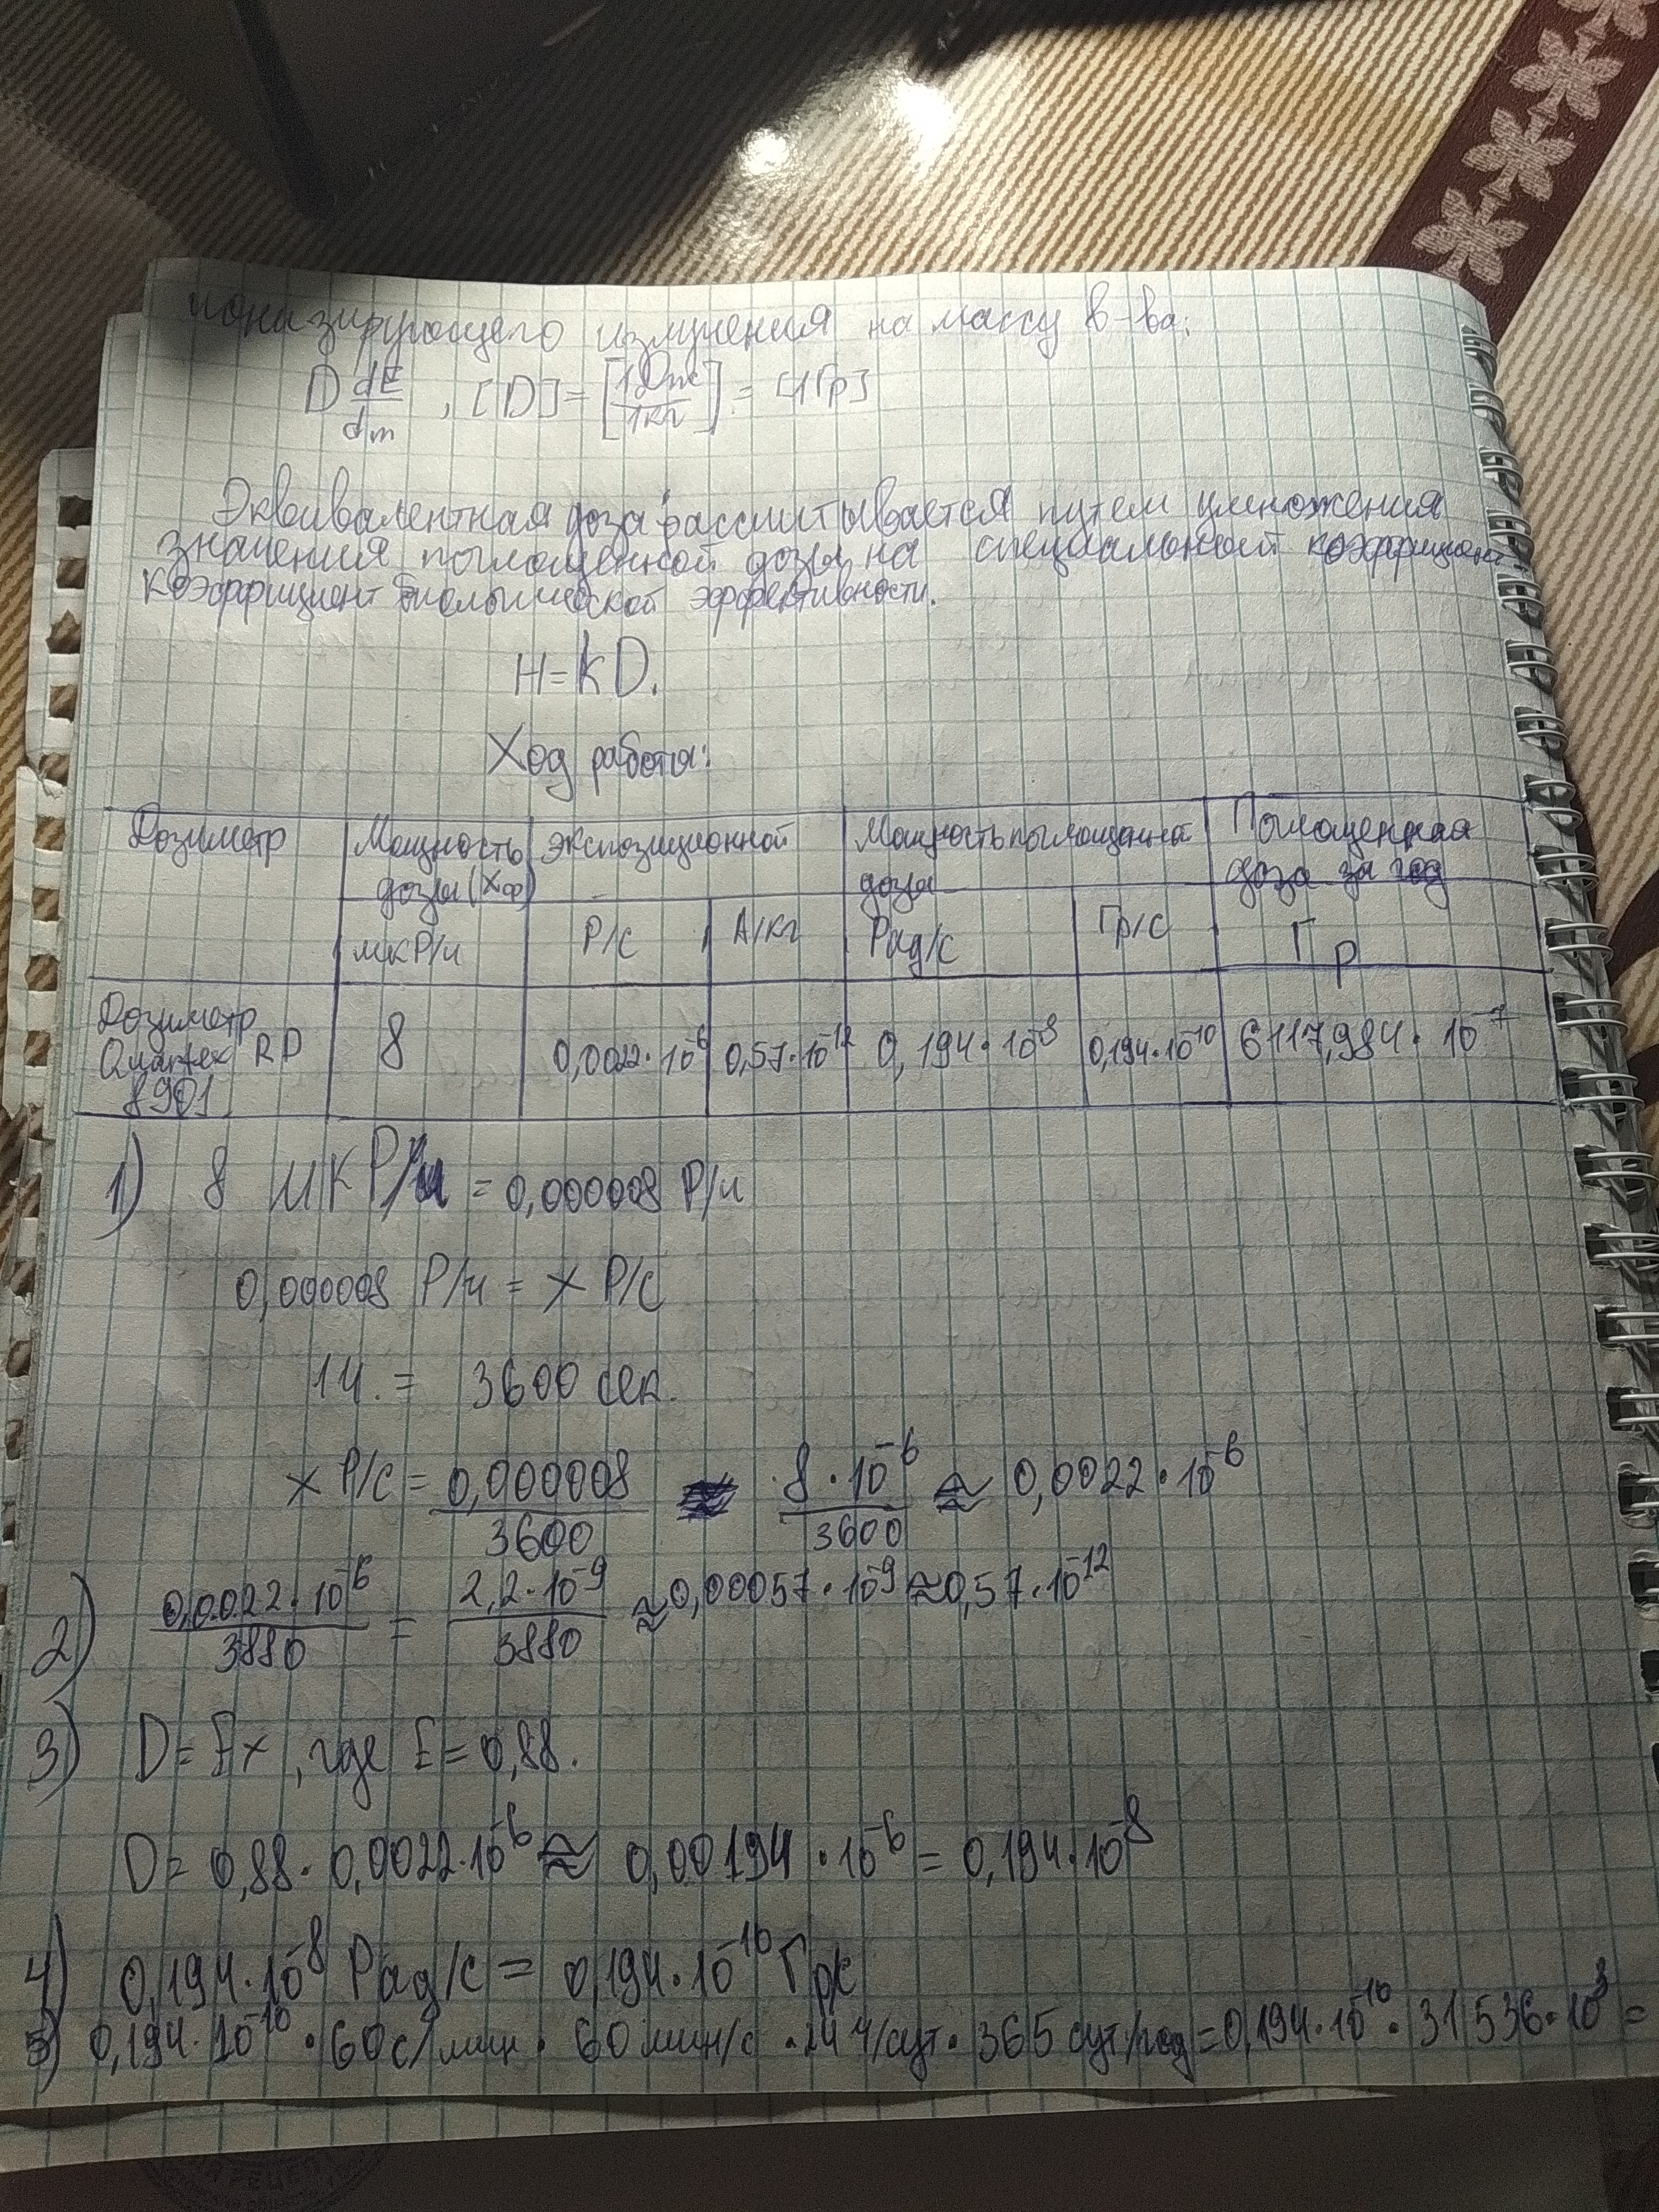 ионазирующего излучения на массу в-ва:
D dE/dm , [D] = [1Дж/1кг] = [1Гр]
Эквивалентная доза рассчитывается путем умножения
значения поглощенной дозы на специальный коэффициент
коэффициент биологической эффективности.
H = kD.
Ход работы:
Дозиметр | Мощность дозы (Хэ) | экспозиционной | Мощность поглощенной дозы | Поглощенная доза за год
мкР/ч | Р/с | А/кг | Рад/с | Гр/с | Гр
Дозиметр Quartex RD 8901 | 8 | 0,0022·10⁻⁶ | 0,57·10⁻¹² | 0,194·10⁻⁸ | 0,194·10⁻¹⁰ | 6117,984·10⁻⁷
1) 8 мкР/ч = 0,000008 Р/ч
0,000008 Р/ч = x Р/с
1ч. = 3600 сек.
x Р/с = 0,000008/3600 8·10⁻⁶/3600 ≈ 0,0022·10⁻⁶
2) 0,0022·10⁻⁶/3880 = 2,2·10⁻⁹/3880 ≈ 0,00057·10⁻⁹ ≈ 0,57·10⁻¹²
3) D = Ex, где E = 0,88.
D = 0,88·0,0022·10⁻⁶ ≈ 0,00194·10⁻⁶ = 0,194·10⁻⁸
4) 0,194·10⁻⁸ Рад/с = 0,194·10⁻¹⁰ Гр/с
5) 0,194·10⁻¹⁰·60с/мин·60мин/с·24ч/сут·365сут/год = 0,194·10⁻¹⁰·31536·10³ =